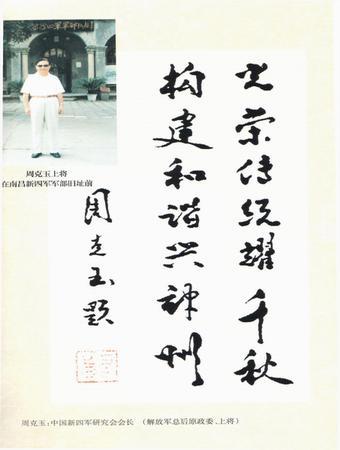 光荣传统耀千秋
构建和谐兴神州
周克玉题
周克玉上将
在南昌新四军军部旧址前
周克玉：中国新四军研究会会长 （解放军总后原政委、上将）